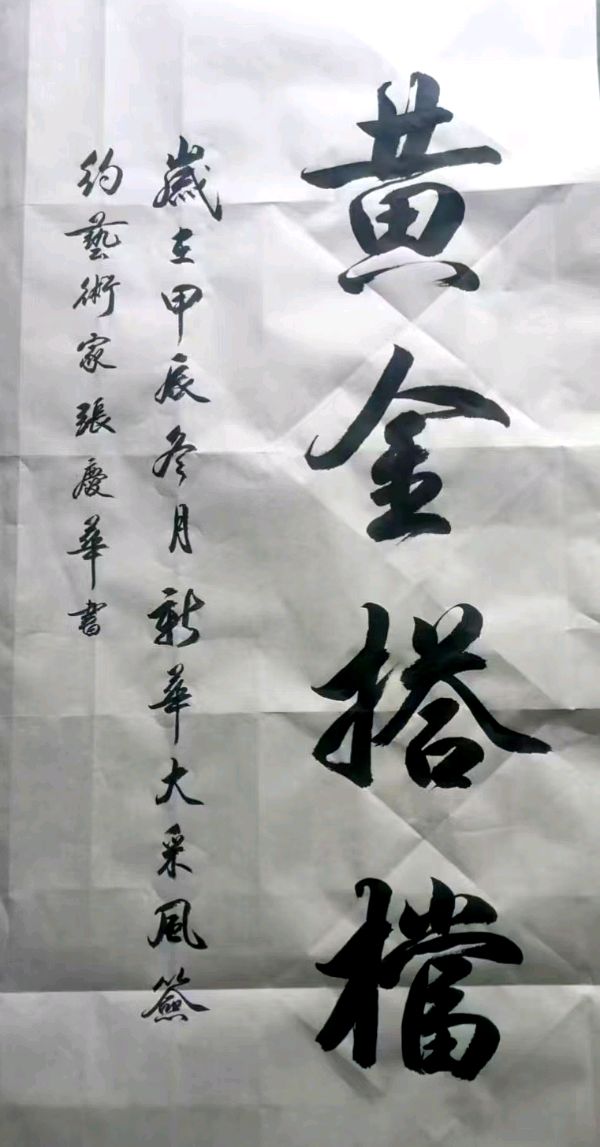 黄金搭檔
歲在甲辰冬月新華大采風簽
約藝術家張慶華書